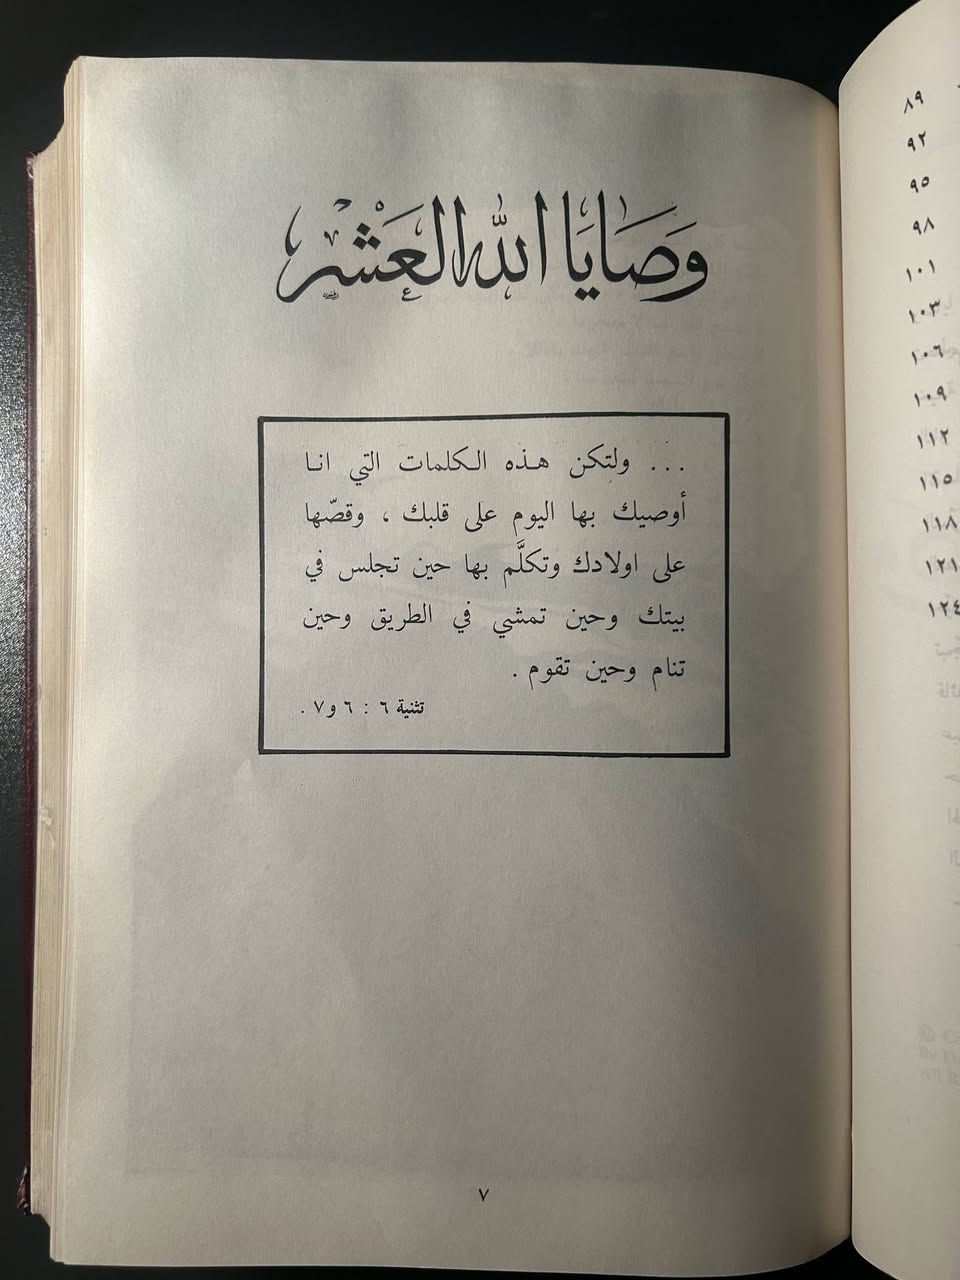 وَصَايَا اللّٰه العَشْر
... ولتكن هذه الكلمات التي انا
أوصيك بها اليوم على قلبك ، وقصّها
على اولادك وتكلَّم بها حين تجلس في
بيتك وحين تمشي في الطريق وحين
تنام وحين تقوم .
تثنية ٦ : ٦ و٧ .
٧
٨٩
٩٢
٩٥
٩٨
١٠١
١٠٣
١٠٦
١٠٩
١١٢
١١٥
١١٨
١٢١
١٢٤